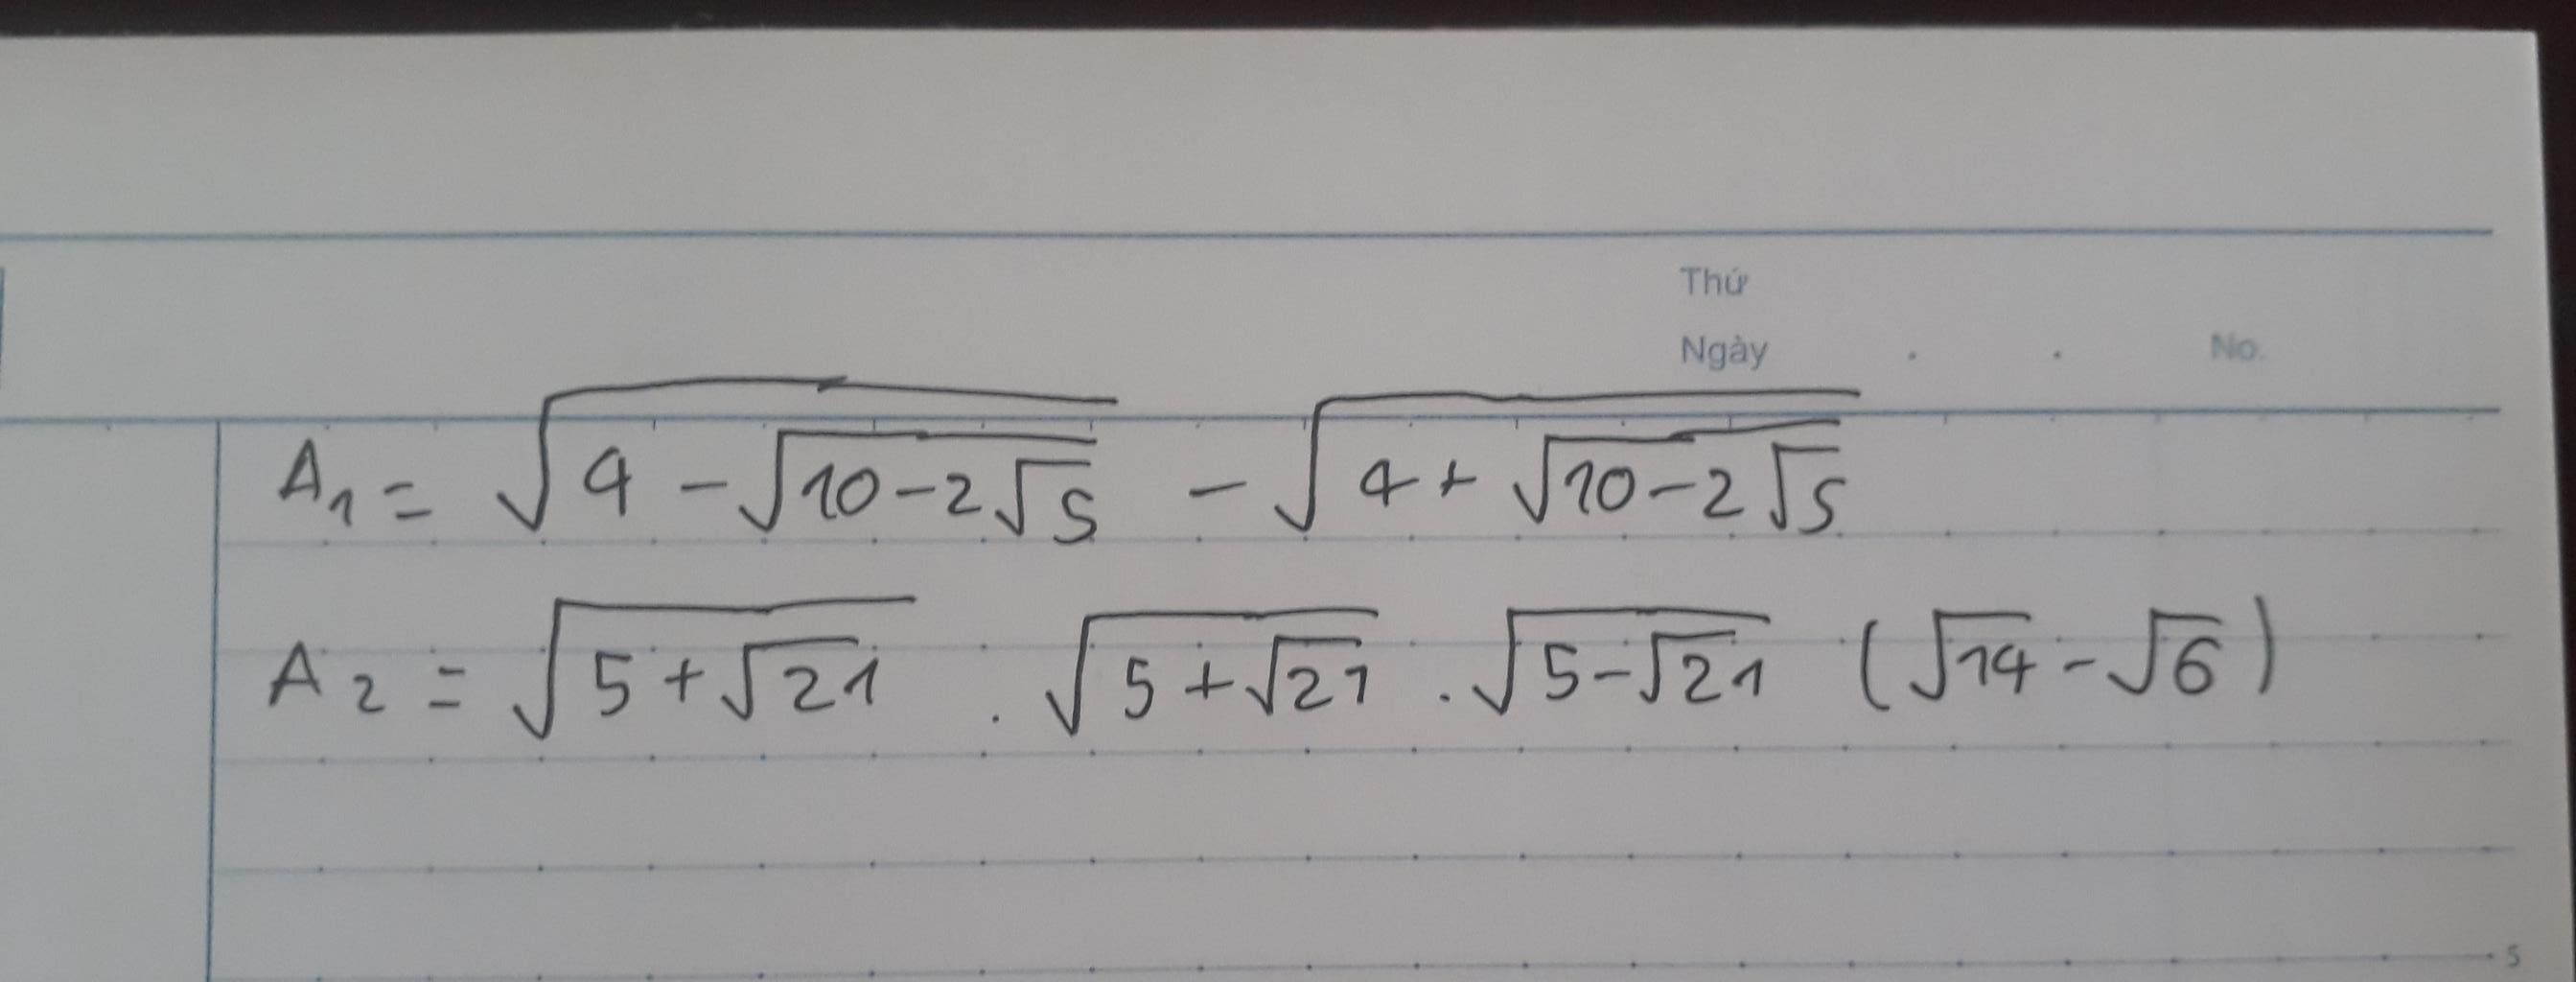 Thứ
Ngày . . No.
A₁ = √(4 - √(10 - 2√5)) - √(4 + √(10 - 2√5))
A₂ = √(5 + √21) . √(5 + √21) . √(5 - √21) (√14 - √6)
5